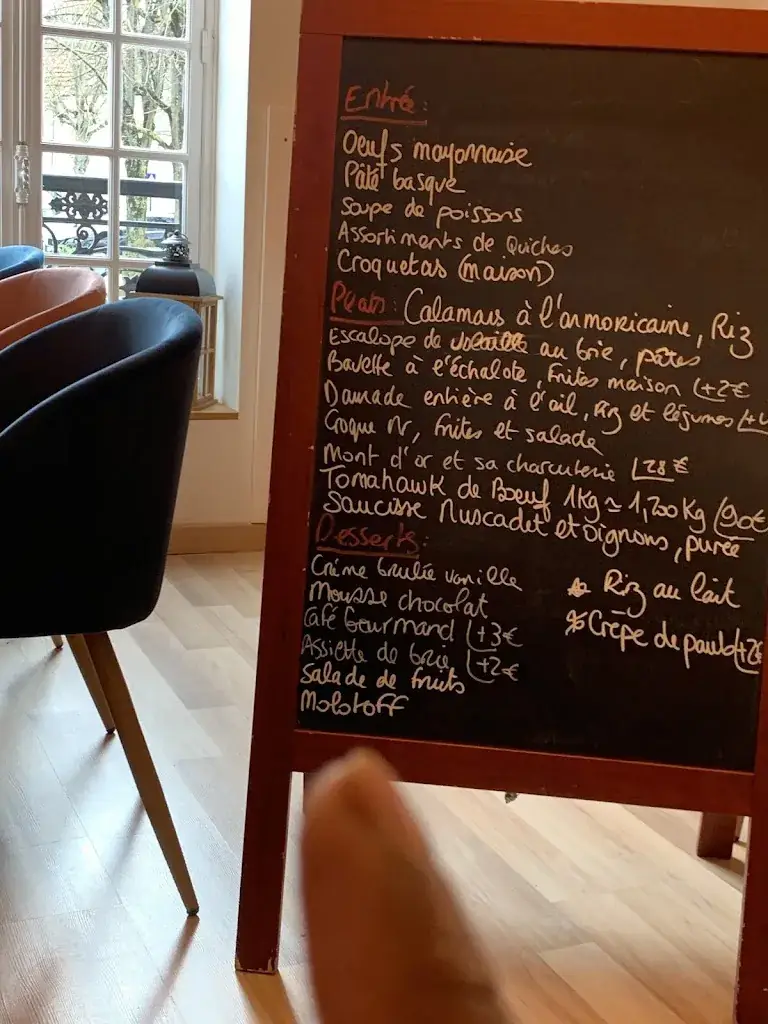 Entrée:
Oeufs mayonnaise
Pâté basque
Soupe de poissons
Assortiments de Quiches
Croquetas (maison)
Plats: Calamars à l'armoricaine, Riz
Escalope de volaille au brie, pâtes
Bavette à l'échalote, frites maison (+2€
Daurade entière à l'ail, riz et légumes
Croque Mr, frites et salade
Mont d'or et sa charcuterie 28€
Tomahawk de Boeuf 1Kg ≃ 1,200Kg (90€
Saucisse Muscadet et oignons, purée
Desserts:
Crème brulée vanille
Mousse chocolat
Café Gourmand (+3€
Assiette de brie (+2€
Salade de fruits
Molotoff
Riz au lait
Crêpe de (+2€